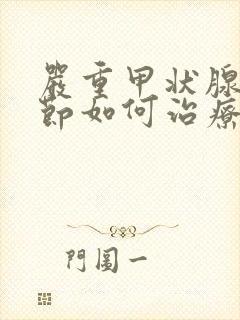 嚴重甲状腺
節如何治療
門圖一